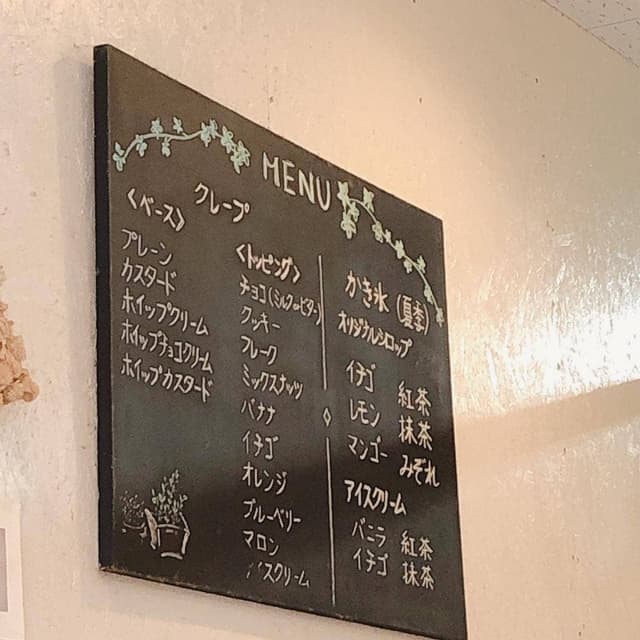 MENU
クレープ
〈ベース〉
プレーン
カスタード
ホイップクリーム
ホイップチョコクリーム
ホイップカスタード
〈トッピング〉
チョコ(ミルクorビター)
クッキー
フレーク
ミックスナッツ
バナナ
イチゴ
オレンジ
ブルーベリー
マロン
アイスクリーム
かき氷(夏季)
オリジナルシロップ
イチゴ 紅茶
レモン 抹茶
マンゴー みぞれ
アイスクリーム
バニラ 紅茶
イチゴ 抹茶